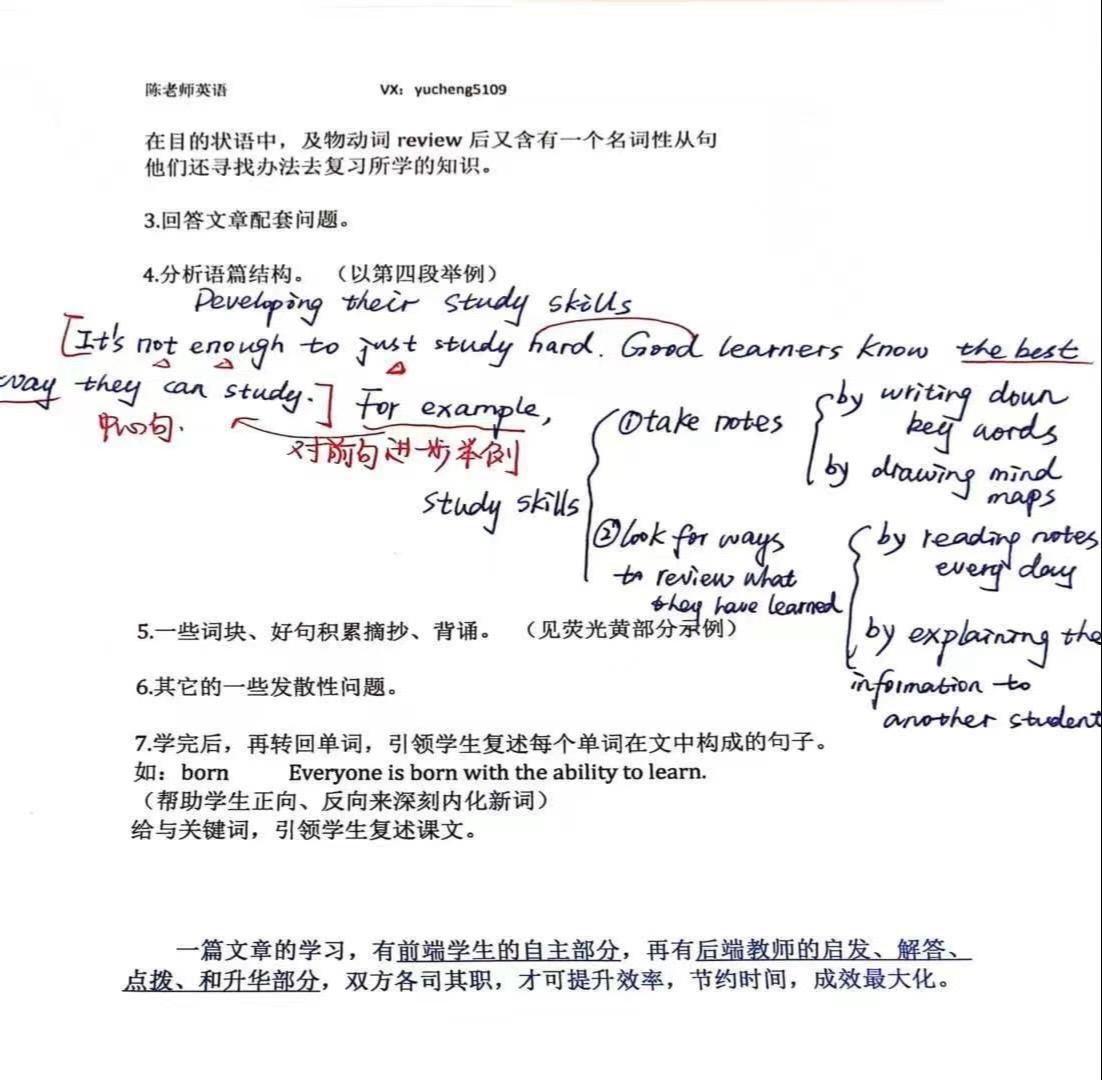 陈老师英语 VX：yucheng5109
在目的状语中，及物动词 review 后又含有一个名词性从句
他们还寻找办法去复习所学的知识。
3.回答文章配套问题。
4.分析语篇结构。 （以第四段举例）
Developing their study skills
[It's not enough to just study hard. Good learners know the best
way they can study.] For example,
中心句.
对前句进一步举例
study skills
①take notes
by writing down
key words
by drawing mind
maps
②look for ways
to review what
they have learned
by reading notes
every day
by explaining the
information to
another student
5.一些词块、好句积累摘抄、背诵。 （见荧光黄部分示例）
6.其它的一些发散性问题。
7.学完后，再转回单词，引领学生复述每个单词在文中构成的句子。
如：born Everyone is born with the ability to learn.
（帮助学生正向、反向来深刻内化新词）
给与关键词，引领学生复述课文。
一篇文章的学习，有前端学生的自主部分，再有后端教师的启发、解答、
点拨、和升华部分，双方各司其职，才可提升效率，节约时间，成效最大化。